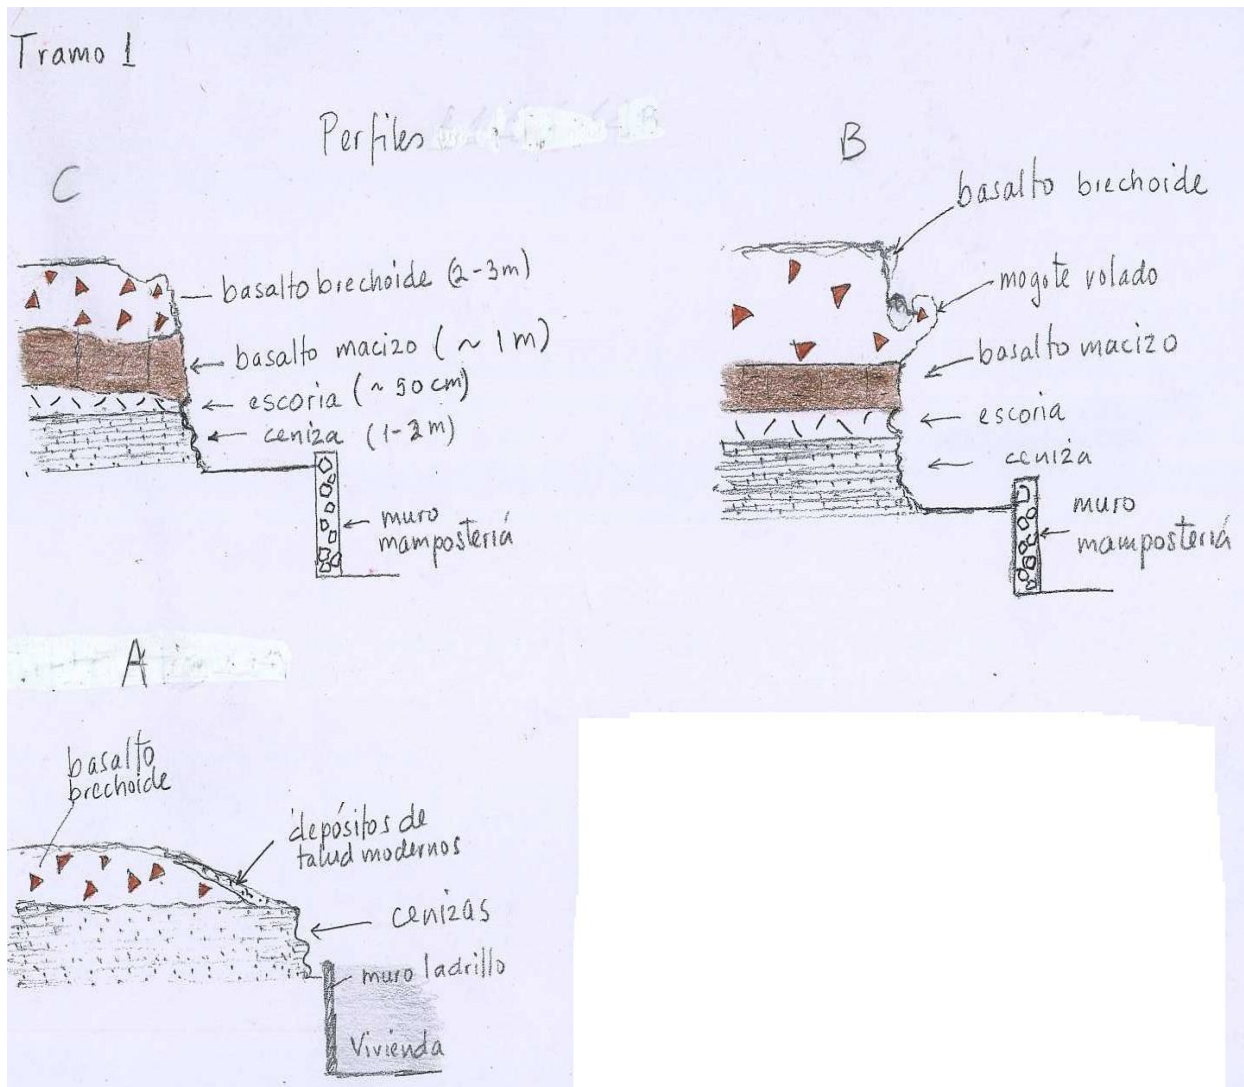 Tramo 1
Perfiles
C
basalto brechoide (2-3m)
basalto macizo (~ 1m)
escoria (~ 50 cm)
ceniza (1-2m)
muro
mampostería
B
basalto brechoide
mogote volado
basalto macizo
escoria
ceniza
muro
mampostería
A
basalto
brechoide
depósitos de
talud modernos
cenizas
muro ladrillo
Vivienda